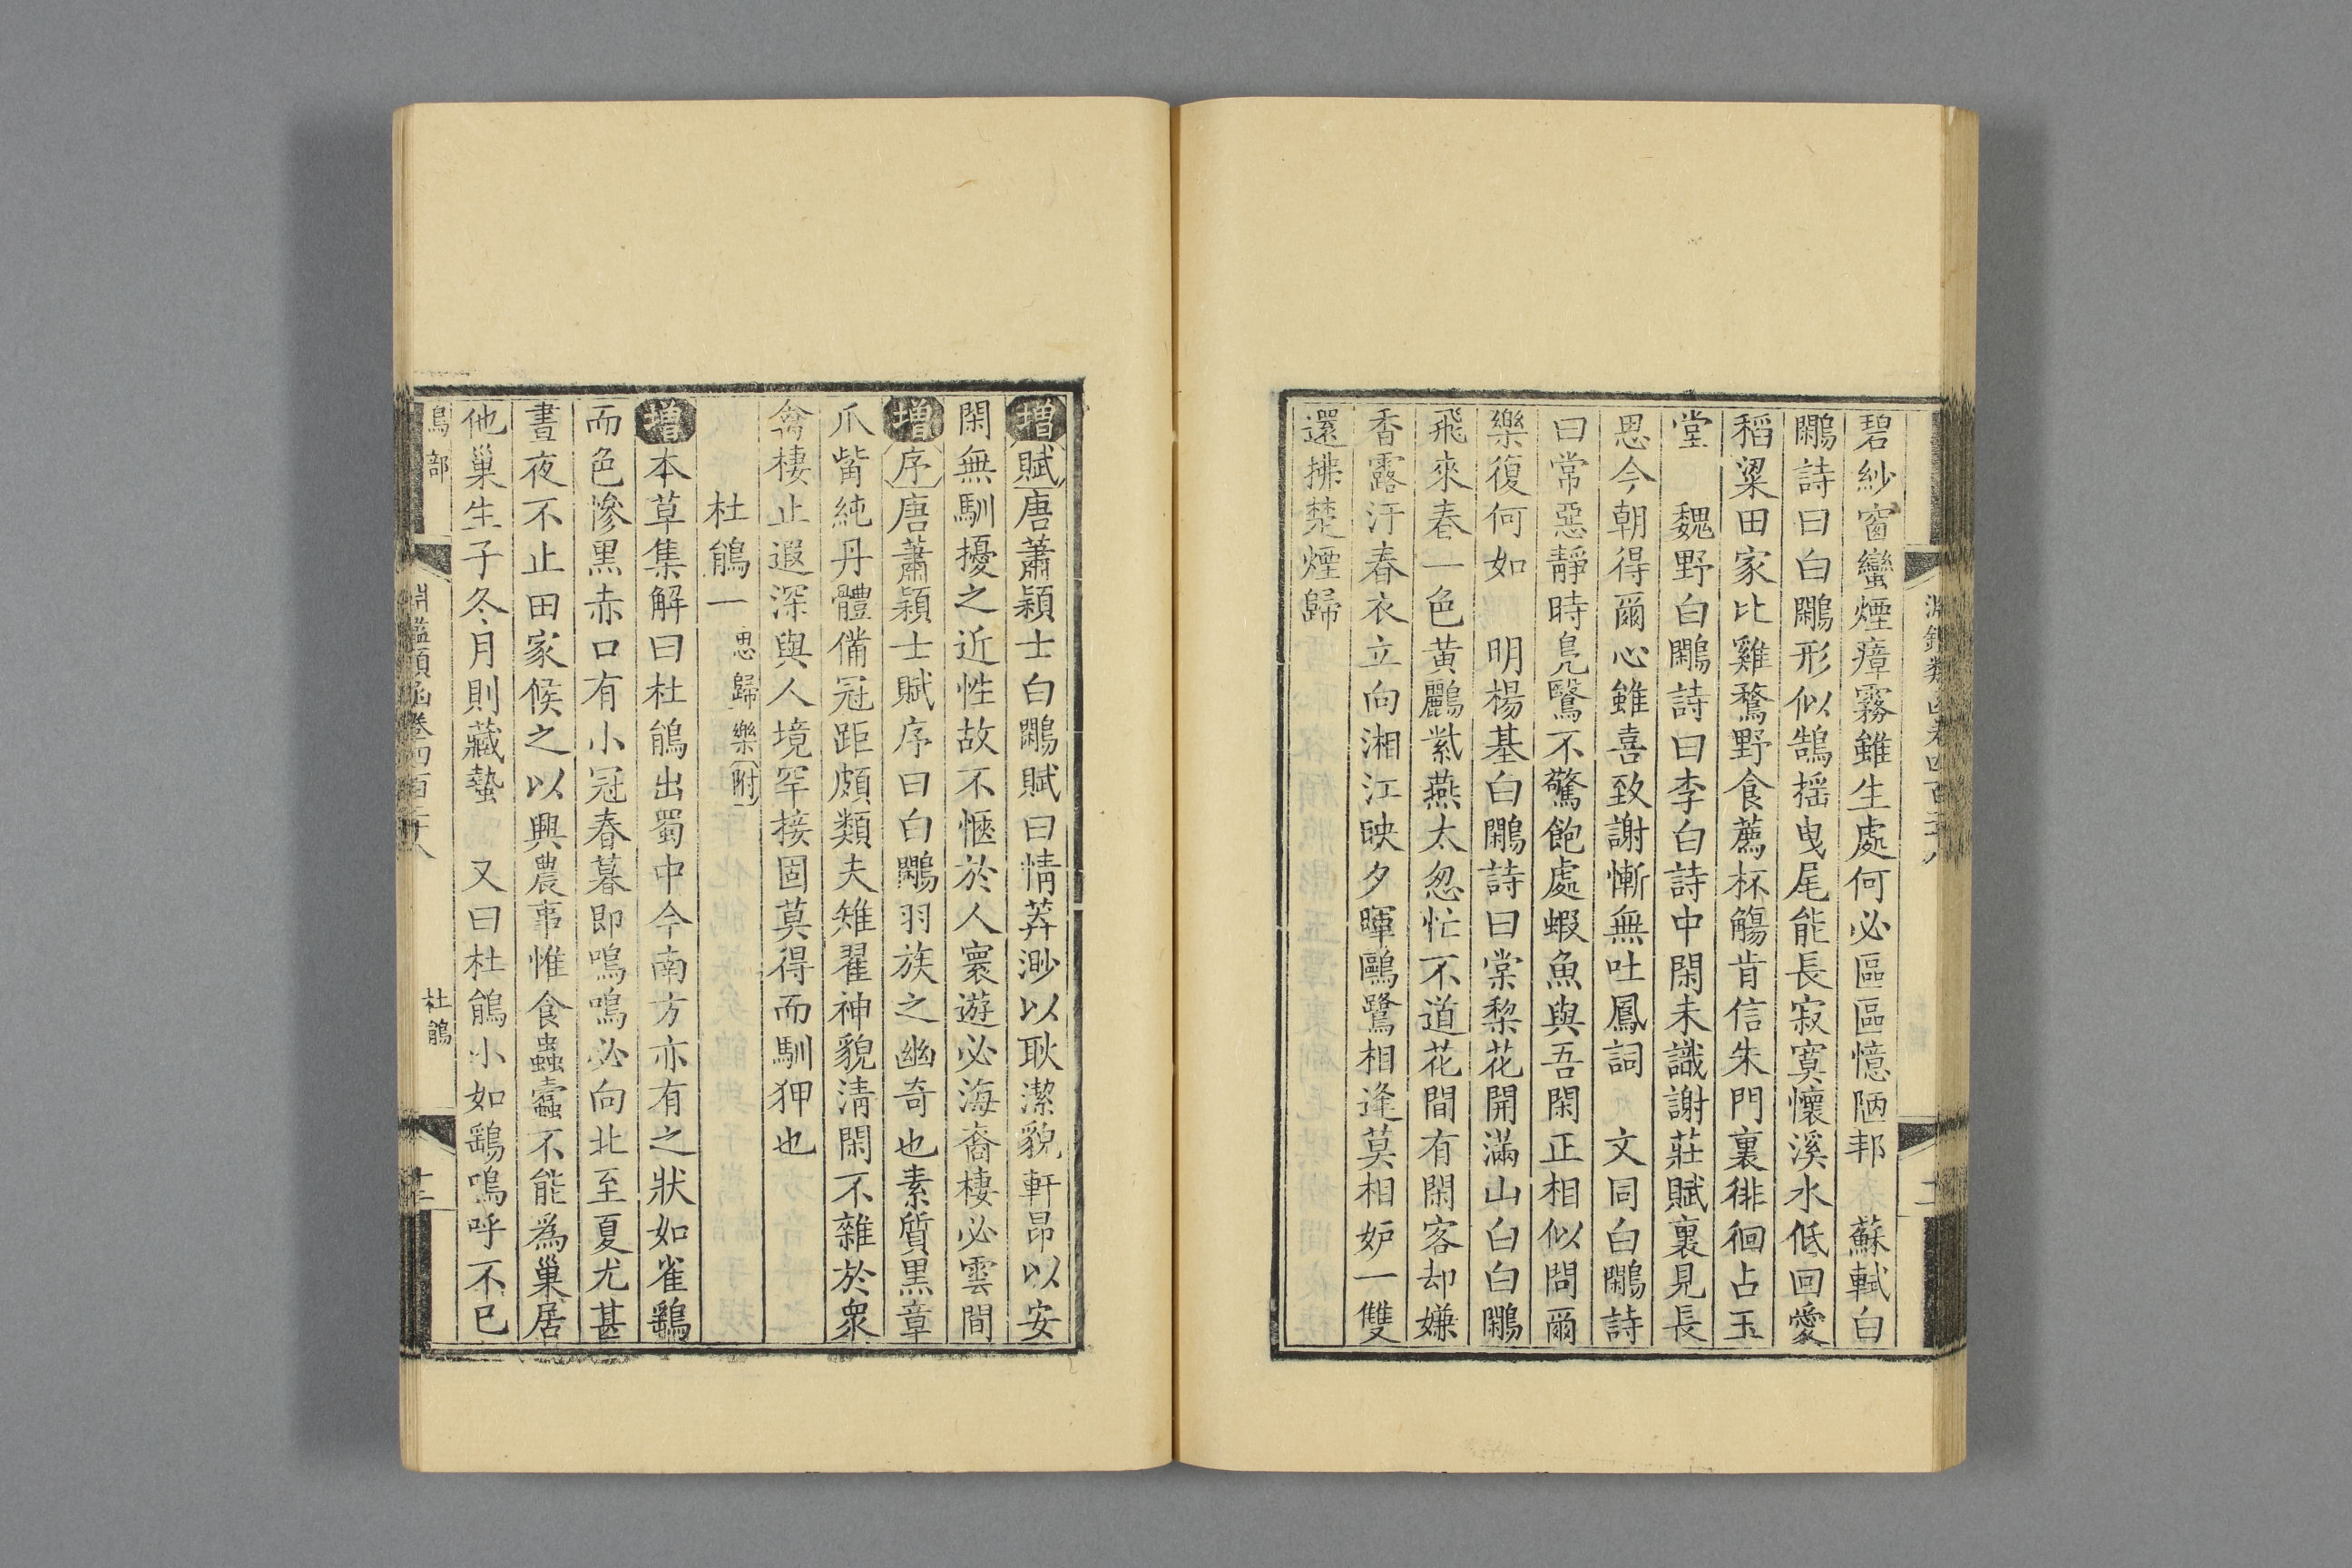 碧紗窗蠻煙瘴霧雖生處何必區區憶陋邦　蘇軾白
鷴詩曰白鷴形似鵠揺曳尾能長寂寞懷溪水低回愛
稻粱田家比雞鶩野食薦杯觴肯信朱門裏徘徊占玉
堂　魏野白鷴詩曰李白詩中閑未識謝莊賦裏見長
思今朝得爾心雖喜致謝慚無吐鳳詞　文同白鷴詩
曰常惡靜時鳧鷖不驚飽處蝦魚與吾閑正相似問爾
樂復何如　明楊基白鷴詩曰棠棃花開滿山白白鷴
飛來春一色黃鸝紫燕太忽忙不道花間有閑客却嫌
香露汙春衣立向湘江映夕暉鷗鷺相逢莫相妒一雙
還拂楚煙歸
增賦唐蕭穎士白鷴賦曰情莽渺以耿潔貌軒昂以安
閑無馴擾之近性故不愜於人寰遊必海裔棲必雲間
增序唐蕭穎士賦序曰白鷴羽族之幽奇也素質黑章
爪觜純丹體備冠距頗類夫雉翟神貌清閑不雜於衆
禽棲止遐深與人境罕接固莫得而馴狎也
杜鵑一思歸樂附
增本草集解曰杜鵑出蜀中今南方亦有之狀如雀鷂
而色慘黑赤口有小冠春暮即鳴鳴必向北至夏尤甚
晝夜不止田家候之以興農事惟食蟲蠹不能爲巢居
他巢生子冬月則藏蟄　又曰杜鵑小如鷂鳴呼不已
鳥部
淵鑑類函卷四百二十八
杜鵑